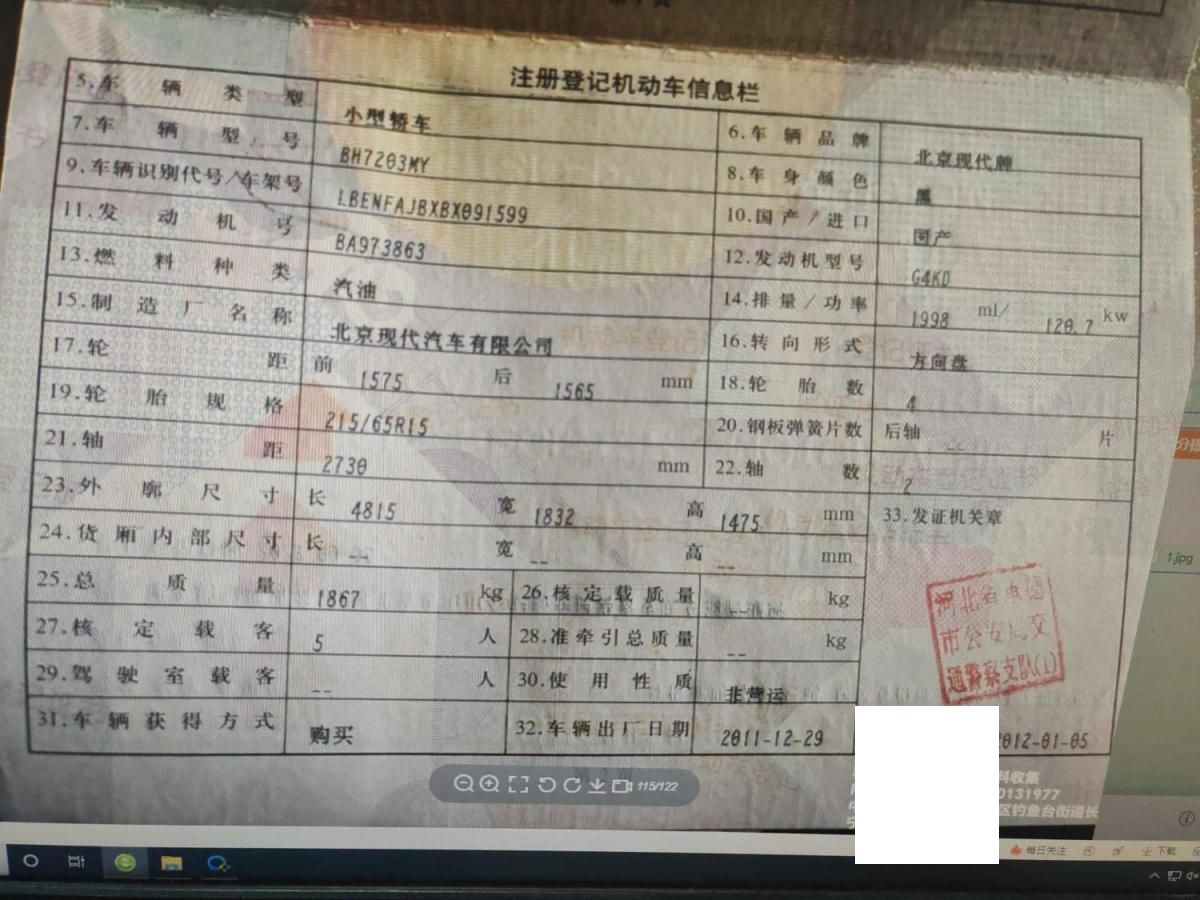 注册登记机动车信息栏
5.车辆类型 小型轿车 6.车辆品牌 北京现代牌
7.车辆型号 BH7203MY 8.车身颜色 黑
9.车辆识别代号/车架号 LBENFAJBXBX091599 10.国产/进口 国产
11.发动机号 BA973863 12.发动机型号 G4KD
13.燃料种类 汽油 14.排量/功率 1998 ml/ 120.7 kw
15.制造厂名称 北京现代汽车有限公司 16.转向形式 方向盘
17.轮距 前 1575 后 1565 mm 18.轮胎数 4
19.轮胎规格 215/65R15 20.钢板弹簧片数 后轴 -- 片
21.轴距 2730 mm 22.轴数 2
23.外廓尺寸 长 4815 宽 1832 高 1475 mm 33.发证机关章
24.货厢内部尺寸 长 -- 宽 -- 高 -- mm
25.总质量 1867 kg 26.核定载质量 -- kg
27.核定载客 5 人 28.准牵引总质量 -- kg
29.驾驶室载客 -- 人 30.使用性质 非营运
31.车辆获得方式 购买 32.车辆出厂日期 2011-12-29
2012-01-05
河北省承德
市公安局交
通警察支队(1)
115/122
料收集
0131977
区钓鱼台街道长
1.jpg
每日关注
下载